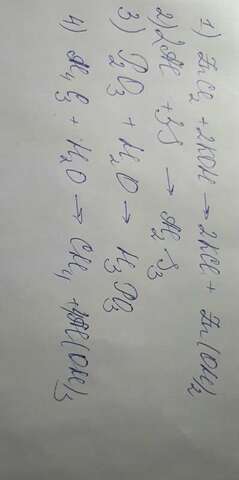 1) ZnCl₂ + 2KOH → 2KCl + Zn(OH)₂
2) 2Al + 3S → Al₂S₃
3) P₂O₃ + H₂O → H₃PO₃
4) Al₄C₃ + H₂O → CH₄ + Al(OH)₃